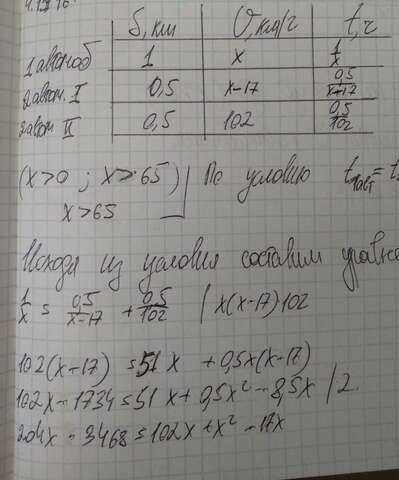 S, км V, км/г t, г
1 автомоб 1 x 1/x
2 автом. I 0,5 x-17 0,5/x-17
2 автом II 0,5 102 0,5/102
(x>0 ; x>65) По условию
x>65
Исходя из условия составим
1/x = 0,5/x-17 + 0,5/102 | x(x-17)102
102(x-17) = 51x + 0,5x(x-17)
102x - 1734 = 51x + 0,5x² - 8,5x | 2.
204x - 3468 = 102x + x² - 17x